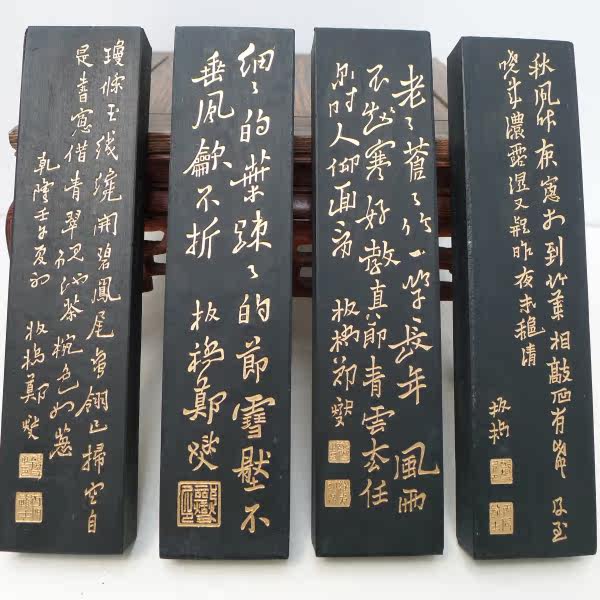 秋風昨夜窗前到竹葉相敲石有聲及至
曉來濃露湿又疑昨夜未穐清
板橋
老〻蒼〻竹一竿長年風雨
不怕寒好教真節青雲去任
尔時人仰面看 板橋鄭燮
細〻的葉疎〻的節雪壓不
垂風歘不折 板橋鄭燮
瓊條玉线繞開碧鳳尾翎已掃空自
是書窗借青翠硯池茶椀色如葱
乾隆壬午夏初 板橋鄭燮